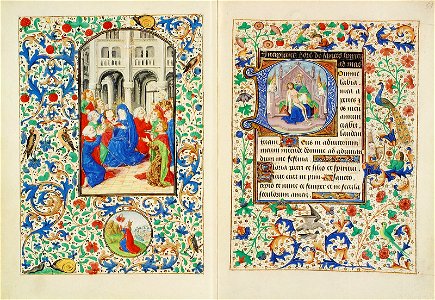 hore de
Domine
labia
mea a
peries
os meum
laudem
tuam Deus in adiutorium
meum intende domine ad adiuuan
dum me festina
Gloria patri et filio et spiritui
sancto Sicut erat in prin
cipio et nunc et semper et in secula
seculorum amen